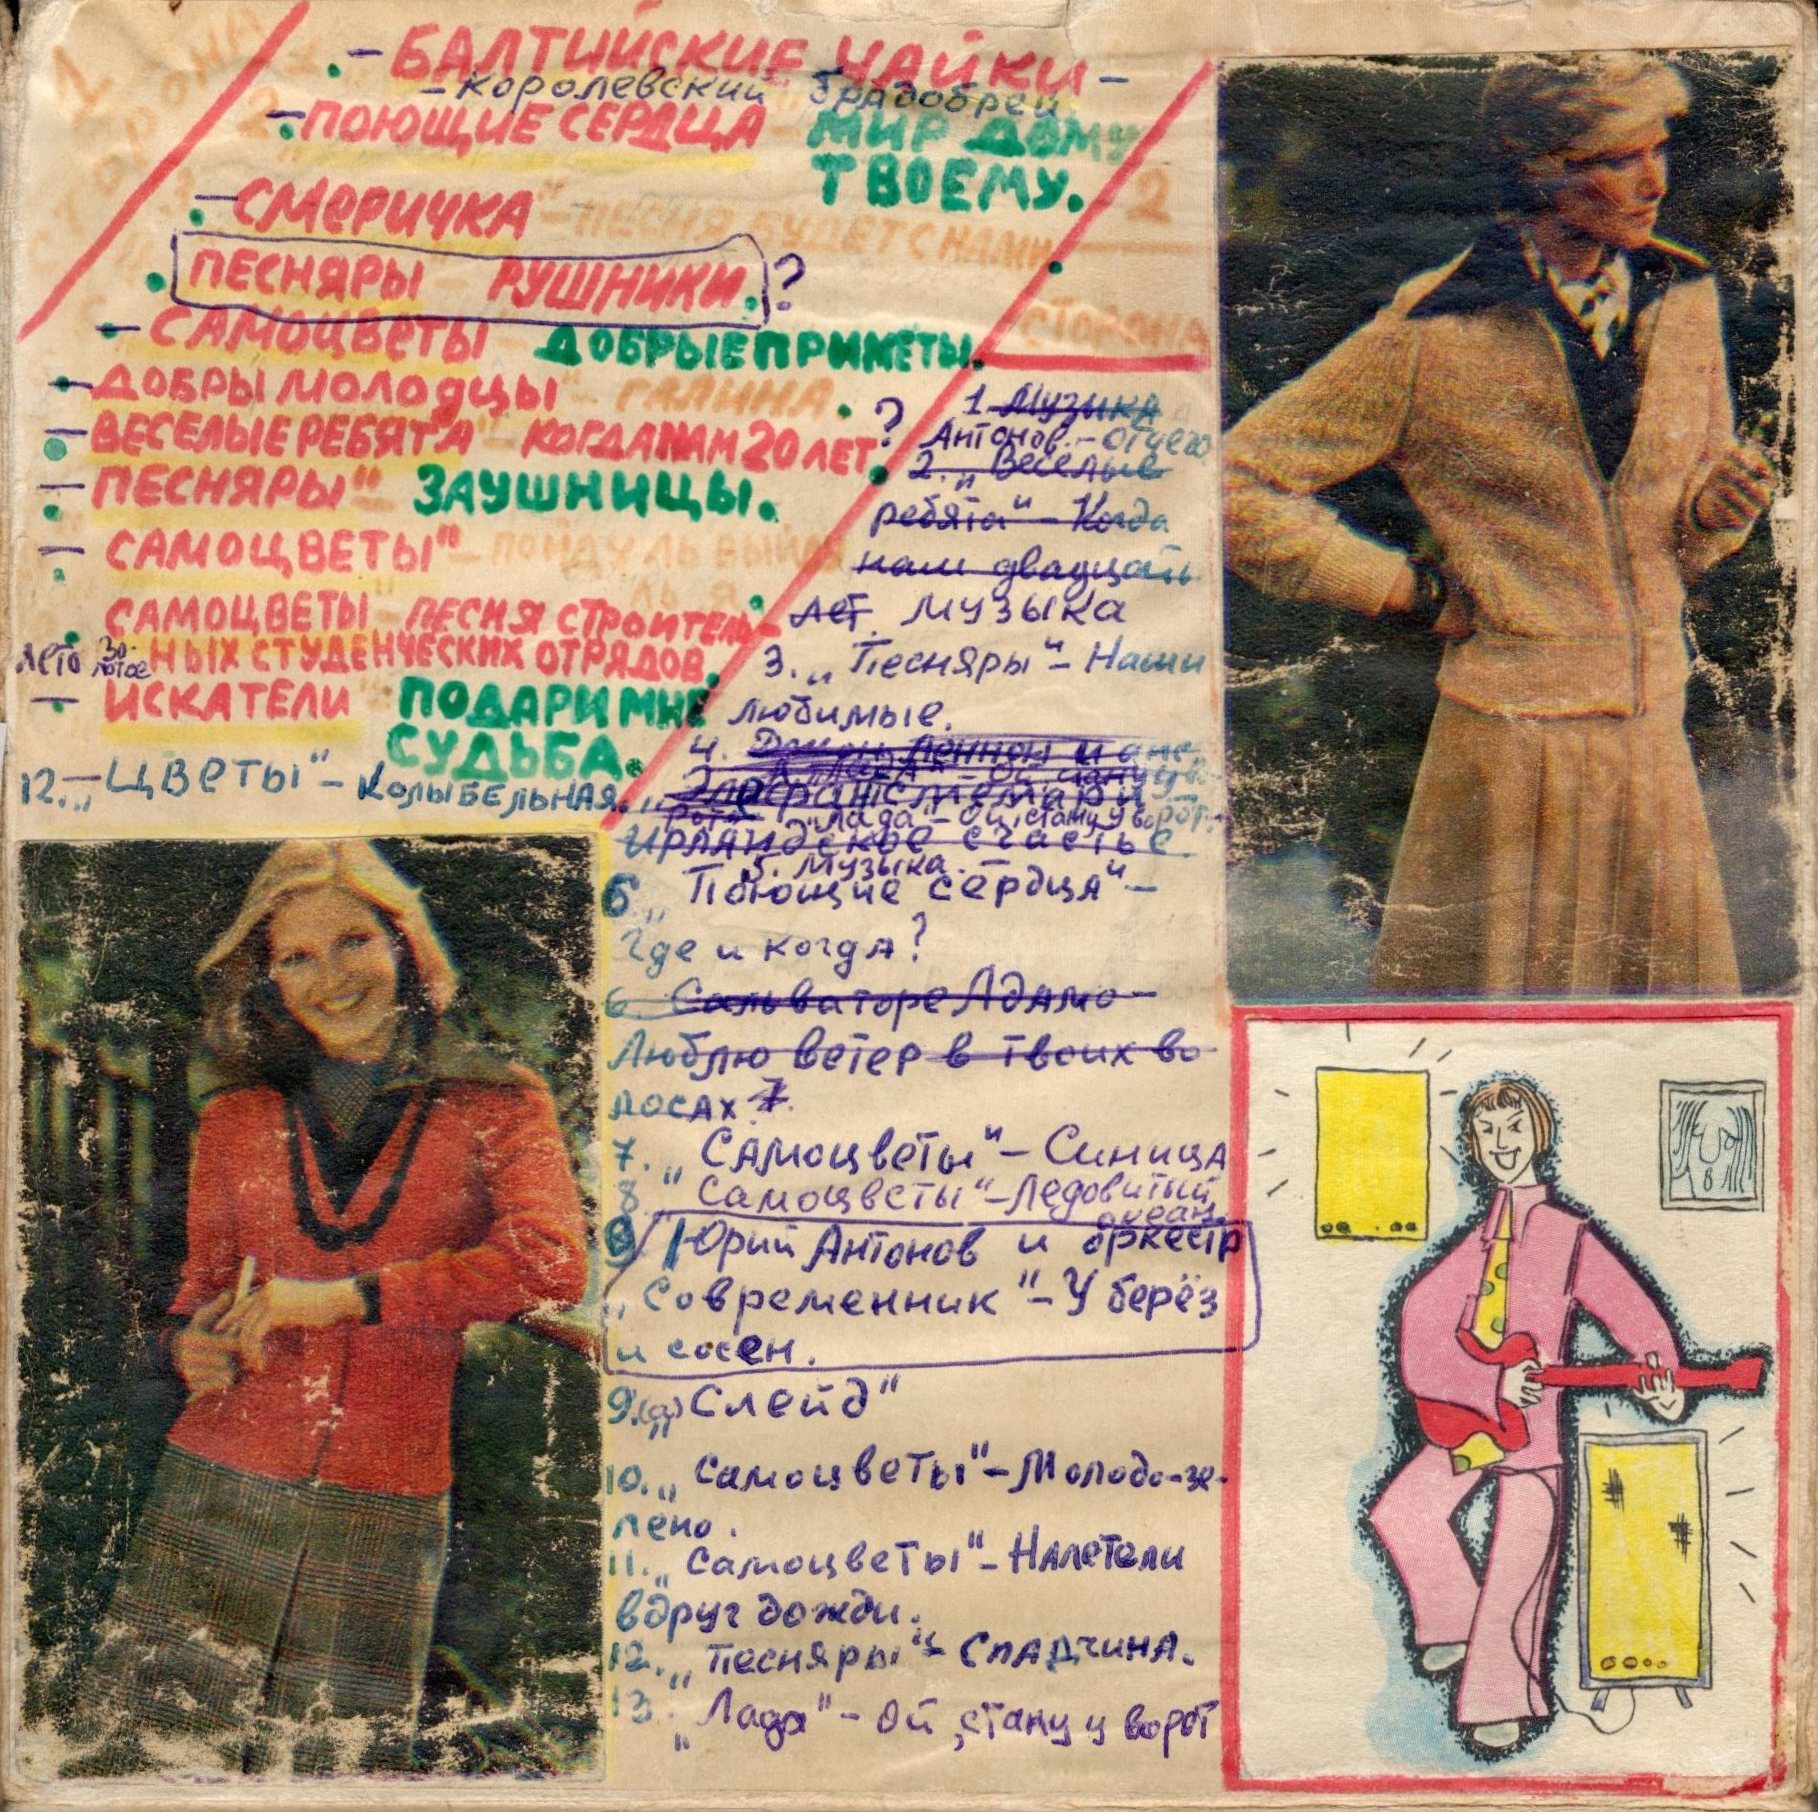 – БАЛТИЙСКИЕ ЧАЙКИ –
– королевский брадобрей
– ПОЮЩИЕ СЕРДЦА – МИР ДОМУ
ТВОЕМУ.
– СМЕРИЧКА" – ПЕСНЯ БУДЕТ С НАМИ
ПЕСНЯРЫ – РУШНИКИ. ?
– САМОЦВЕТЫ" – ДОБРЫЕ ПРИМЕТЫ.
– ДОБРЫ МОЛОДЦЫ" – ГАЛИНА.
– ВЕСЕЛЫЕ РЕБЯТА" – КОГДА НАМ 20 ЛЕТ. ?
– ПЕСНЯРЫ" – ЗАУШНИЦЫ.
– САМОЦВЕТЫ" – ПОЙДУ ЛЬ ВЫЙДУ
ЛЬ Я.
САМОЦВЕТЫ – ПЕСНЯ СТРОИТЕЛЬ-
лето золотое НЫХ СТУДЕНЧЕСКИХ ОТРЯДОВ.
– ИСКАТЕЛИ – ПОДАРИ МНЕ
СУДЬБА.
12. – „ЦВЕТЫ" – КОЛЫБЕЛЬНАЯ.
2
СТОРОНА
1. Музыка
Антонов. – Отчего
2. „Веселые
ребята" – Когда
нам двадцать
лет. музыка
3. „Песняры" – Наши
любимые.
4. Джон Леннон и
"Лада" – Ой, стану у ворот.
Ирландское счастье.
5. Музыка. –
6. „Поющие сердца" –
Где и когда?
6. Сальваторе Адамо –
Люблю ветер в твоих во
лосах 7.
7. „Самоцветы" – Синица
8. „Самоцветы" – Ледовитый
океан.
9. Юрий Антонов и оркестр
„Современник" – У берёз
и сосен.
9.(а) „Слейд"
10. „Самоцветы" – Молодо-зе-
лено.
11. „Самоцветы" – Налетели
вдруг дожди.
12. „Песняры" – Спадчина.
13. „Лада" – Ой, стану у ворот